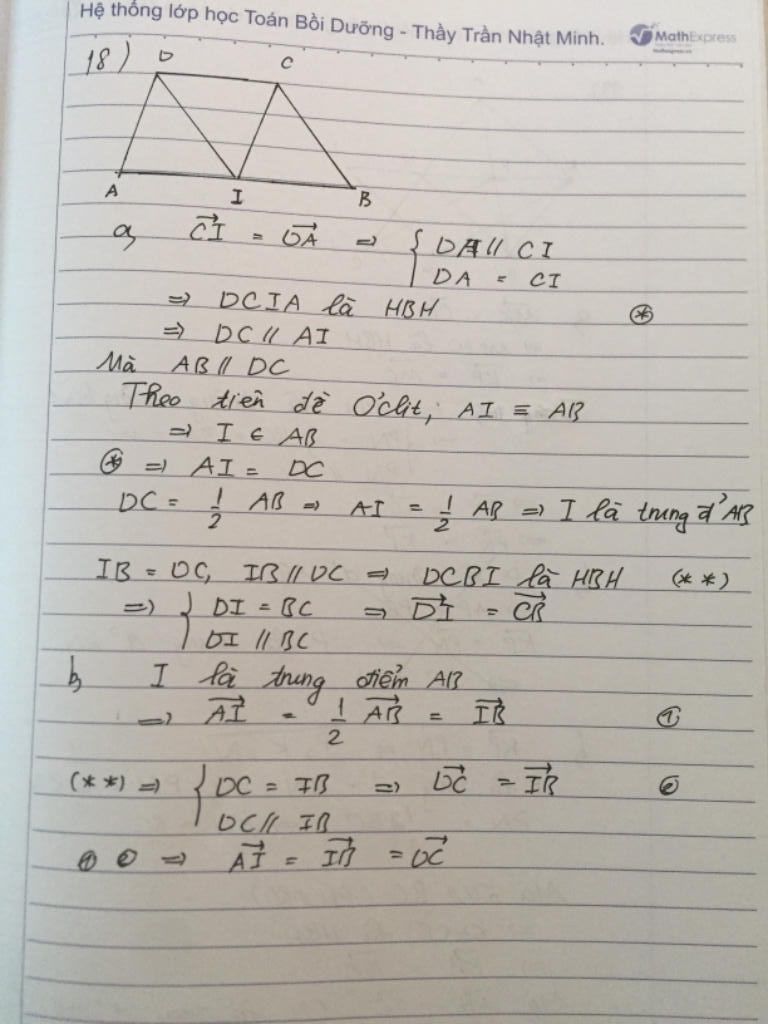 Hệ thống lớp học Toán Bồi Dưỡng - Thầy Trần Nhật Minh. MathExpress
18)
D C
A I B
a, CI = DA => { DA // CI
DA = CI
=> DCIA là HBH (*)
=> DC // AI
Mà AB // DC
Theo tiên đề Ơclit, AI ≡ AB
=> I ∈ AB
(*) => AI = DC
DC = 1/2 AB => AI = 1/2 AB => I là trung đ' AB
IB = DC, IB // DC => DCBI là HBH (**)
=> { DI = BC => DI = CB
DI // BC
b, I là trung điểm AB
=> AI = 1/2 AB = IB ①
(**) => { DC = IB => DC = IB ②
DC // IB
① ② => AI = IB = DC